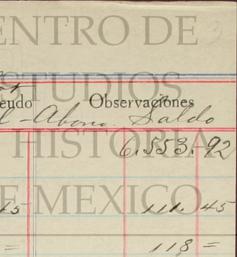 CENTRO DE
ESTUDIOS
eudo Observaciones
l - Abono. Saldo
HISTORIA
6.553.92
DE MEXICO
45 111. 45
= 118 =